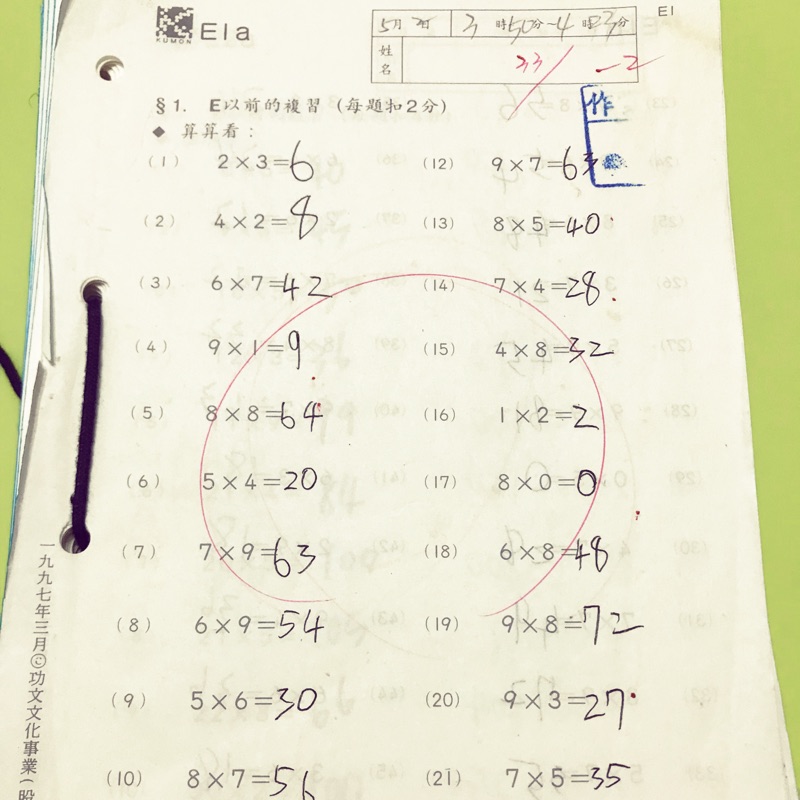 KUMON
E1a
E1
5月
3時50分~4時3分
姓名
33 -2
作
§1. E以前的複習 (每題扣2分)
◆ 算算看:
(1) 2×3=6
(12) 9×7=63
(2) 4×2=8
(13) 8×5=40
(3) 6×7=42
(14) 7×4=28
(4) 9×1=9
(15) 4×8=32
(5) 8×8=64
(16) 1×2=2
(6) 5×4=20
(17) 8×0=0
(7) 7×9=63
(18) 6×8=48
(8) 6×9=54
(19) 9×8=72
(9) 5×6=30
(20) 9×3=27
(10) 8×7=56
(21) 7×5=35
一九九七年三月©功文文化事業(股